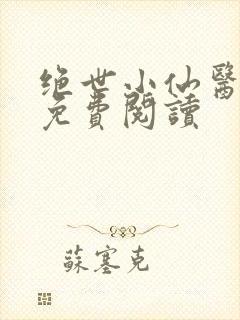 绝世小仙醫
免費閱讀
蘇塞克